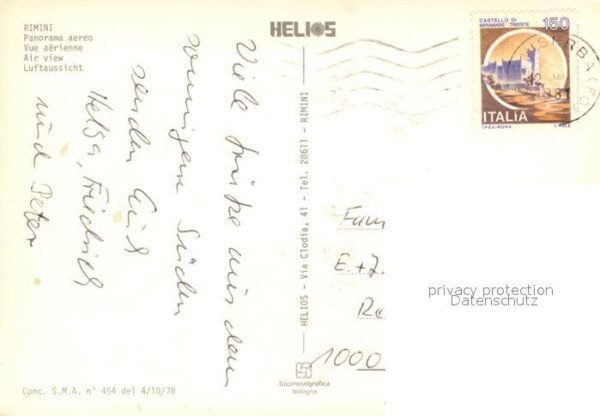 RIMINI
Panorama aereo
Vue aérienne
Air view
Luftaussicht
HELIOS
CASTELLO DI
MIRAMARE - TRIESTE
150
ITALIA
I.P.Z.S.-ROMA
Viele Grüße aus dem
sonnigen Süden
senden Euch
Helga, Friedrich
und Peter
HELIOS - Via Clodia, 41 - Tel. 28611 - RIMINI
Fam
E.+J.
Re
1000
privacy protection
Datenschutz
fotometalgrafica
bologna
Conc. S.M.A. n° 454 del 4/10/78